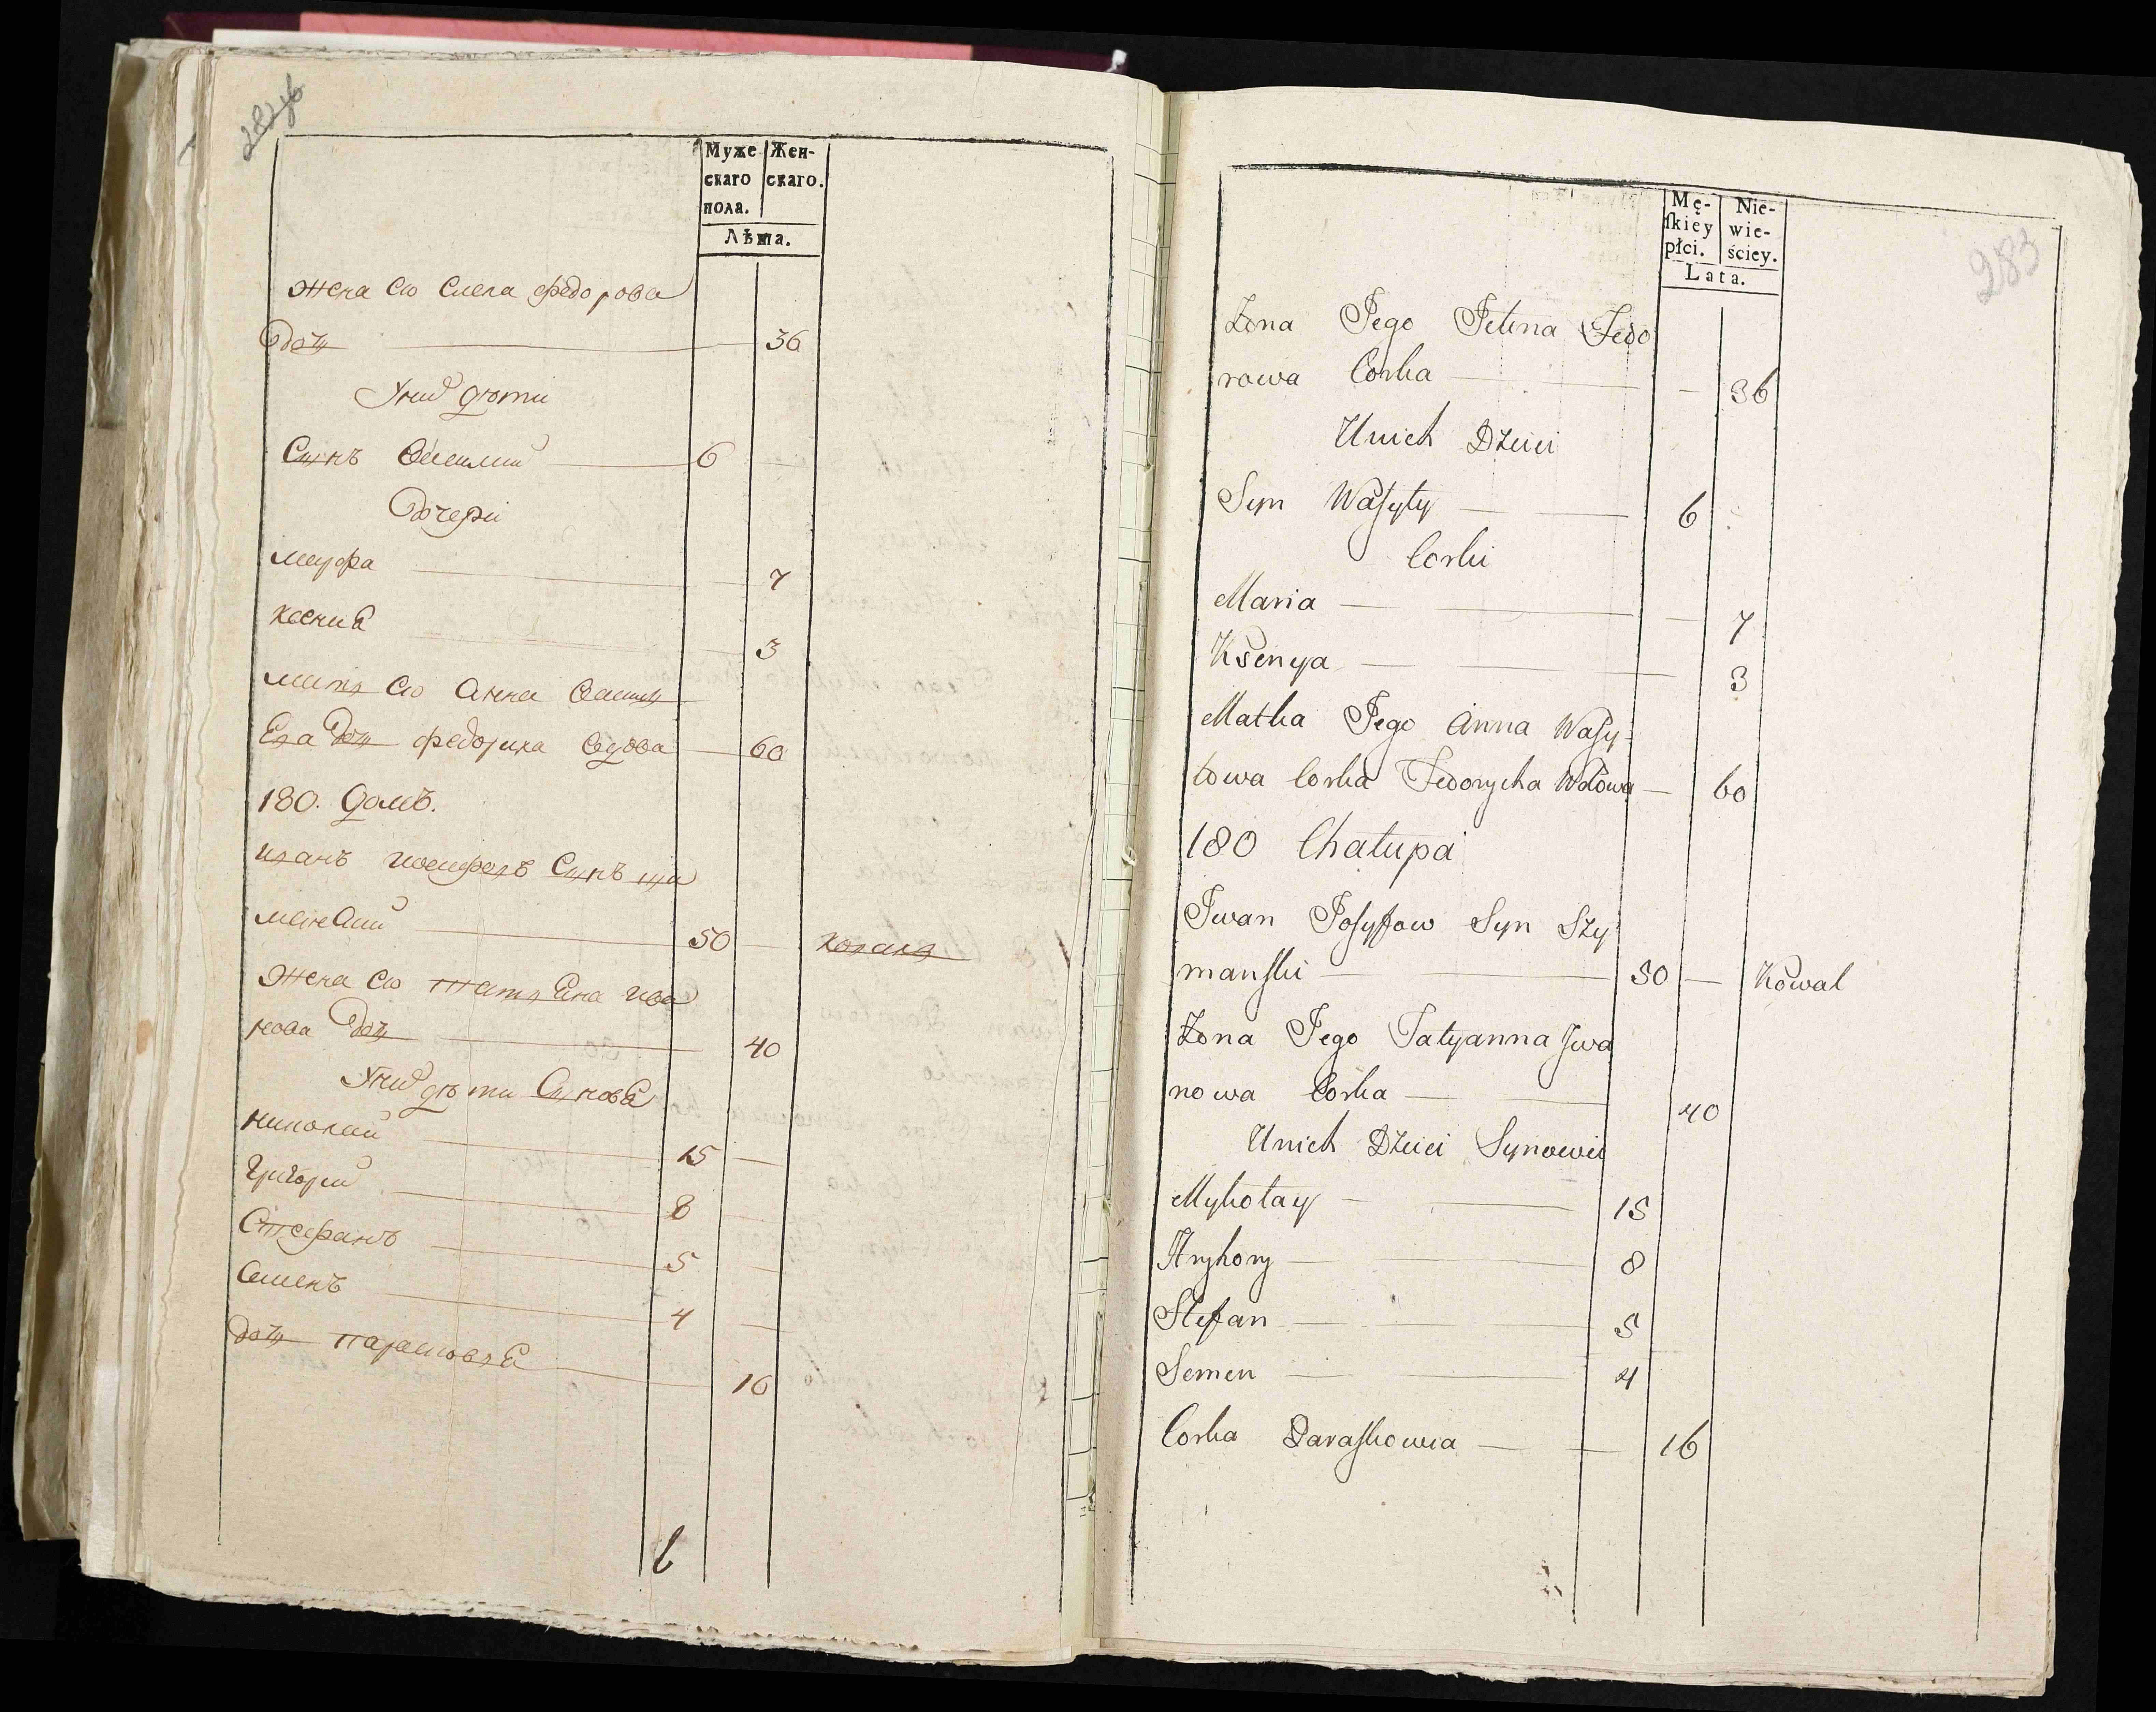 282 об
Муже
скаго
пола.
Жен-
скаго.
Лѣта.
жена его Елена федорова
дочь 36
У них дѣти
Сынъ Василий 6
дочери
марфа 7
ксения 3
мать его анна Васил
Ева дочь федориха вдова 60
180. домъ.
иванъ иосифовъ Сынъ ши
манский 50 коваль
жена его татьяна ива
нова дочь 40
У них дѣти Сыновя
николай 15
григорий 8
Стефанъ 5
Семенъ 4
дочь парасковея 16
283
Mę-
ſkiey
płci.
Nie-
wie-
ściey.
Lata.
Zona Jego Jelena Fedo
rowa Corka 36
Unich Dzieci
Syn Wasyly 6
Corki
Maria 7
Ksenya 3
Matka Jego Anna Wasy-
lowa Corka Fedorycha Wdowa 60
180 Chalupa
Iwan Josyfow Syn Szy
manski 50 Kowal
Zona Jego Tatyanna Iwa
nowa Corka 40
Unich Dzieci Synowie
Mykolay 15
Hryhory 8
Stefan 5
Semen 4
Corka Paraskowia 16